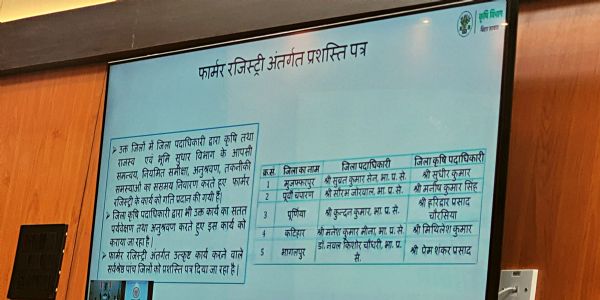 कृषि विभाग
बिहार सरकार
फार्मर रजिस्ट्री अंतर्गत प्रशस्ति पत्र
➤ उक्त जिलों में जिला पदाधिकारी द्वारा कृषि तथा
राजस्व एवं भूमि सुधार विभाग के आपसी
समन्वय, नियमित समीक्षा, अनुश्रवण, तकनीकी
समस्याओं का ससमय निवारण करते हुए फार्मर
रजिस्ट्री के कार्य को गति प्रदान की गयी है।
➤ जिला कृषि पदाधिकारी द्वारा भी उक्त कार्य का सतत
पर्यवेक्षण तथा अनुश्रवण करते हुए इस कार्य को
कराया जा रहा है।
➤ फार्मर रजिस्ट्री अंतर्गत उत्कृष्ट कार्य करने वाले
सर्वश्रेष्ठ पाँच जिलों को प्रशस्ति पत्र दिया जा रहा है।
क्र.सं. जिला का नाम जिला पदाधिकारी जिला कृषि पदाधिकारी
1 मुजफ्फरपुर श्री सुब्रत कुमार सेन, भा. प्र. से. श्री सुधीर कुमार
2 पूर्वी चंपारण श्री सौरभ जोरवाल, भा. प्र. से. श्री मनीष कुमार सिंह
3 पूर्णिया श्री कुन्दन कुमार, भा. प्र. से. श्री हरिद्वार प्रसाद
चौरसिया
4 कटिहार श्री मनेश कुमार मीना, भा. प्र. से. श्री मिथिलेश कुमार
5 भागलपुर डॉ. नवल किशोर चौधरी, भा. प्र.
से. श्री प्रेम शंकर प्रसाद